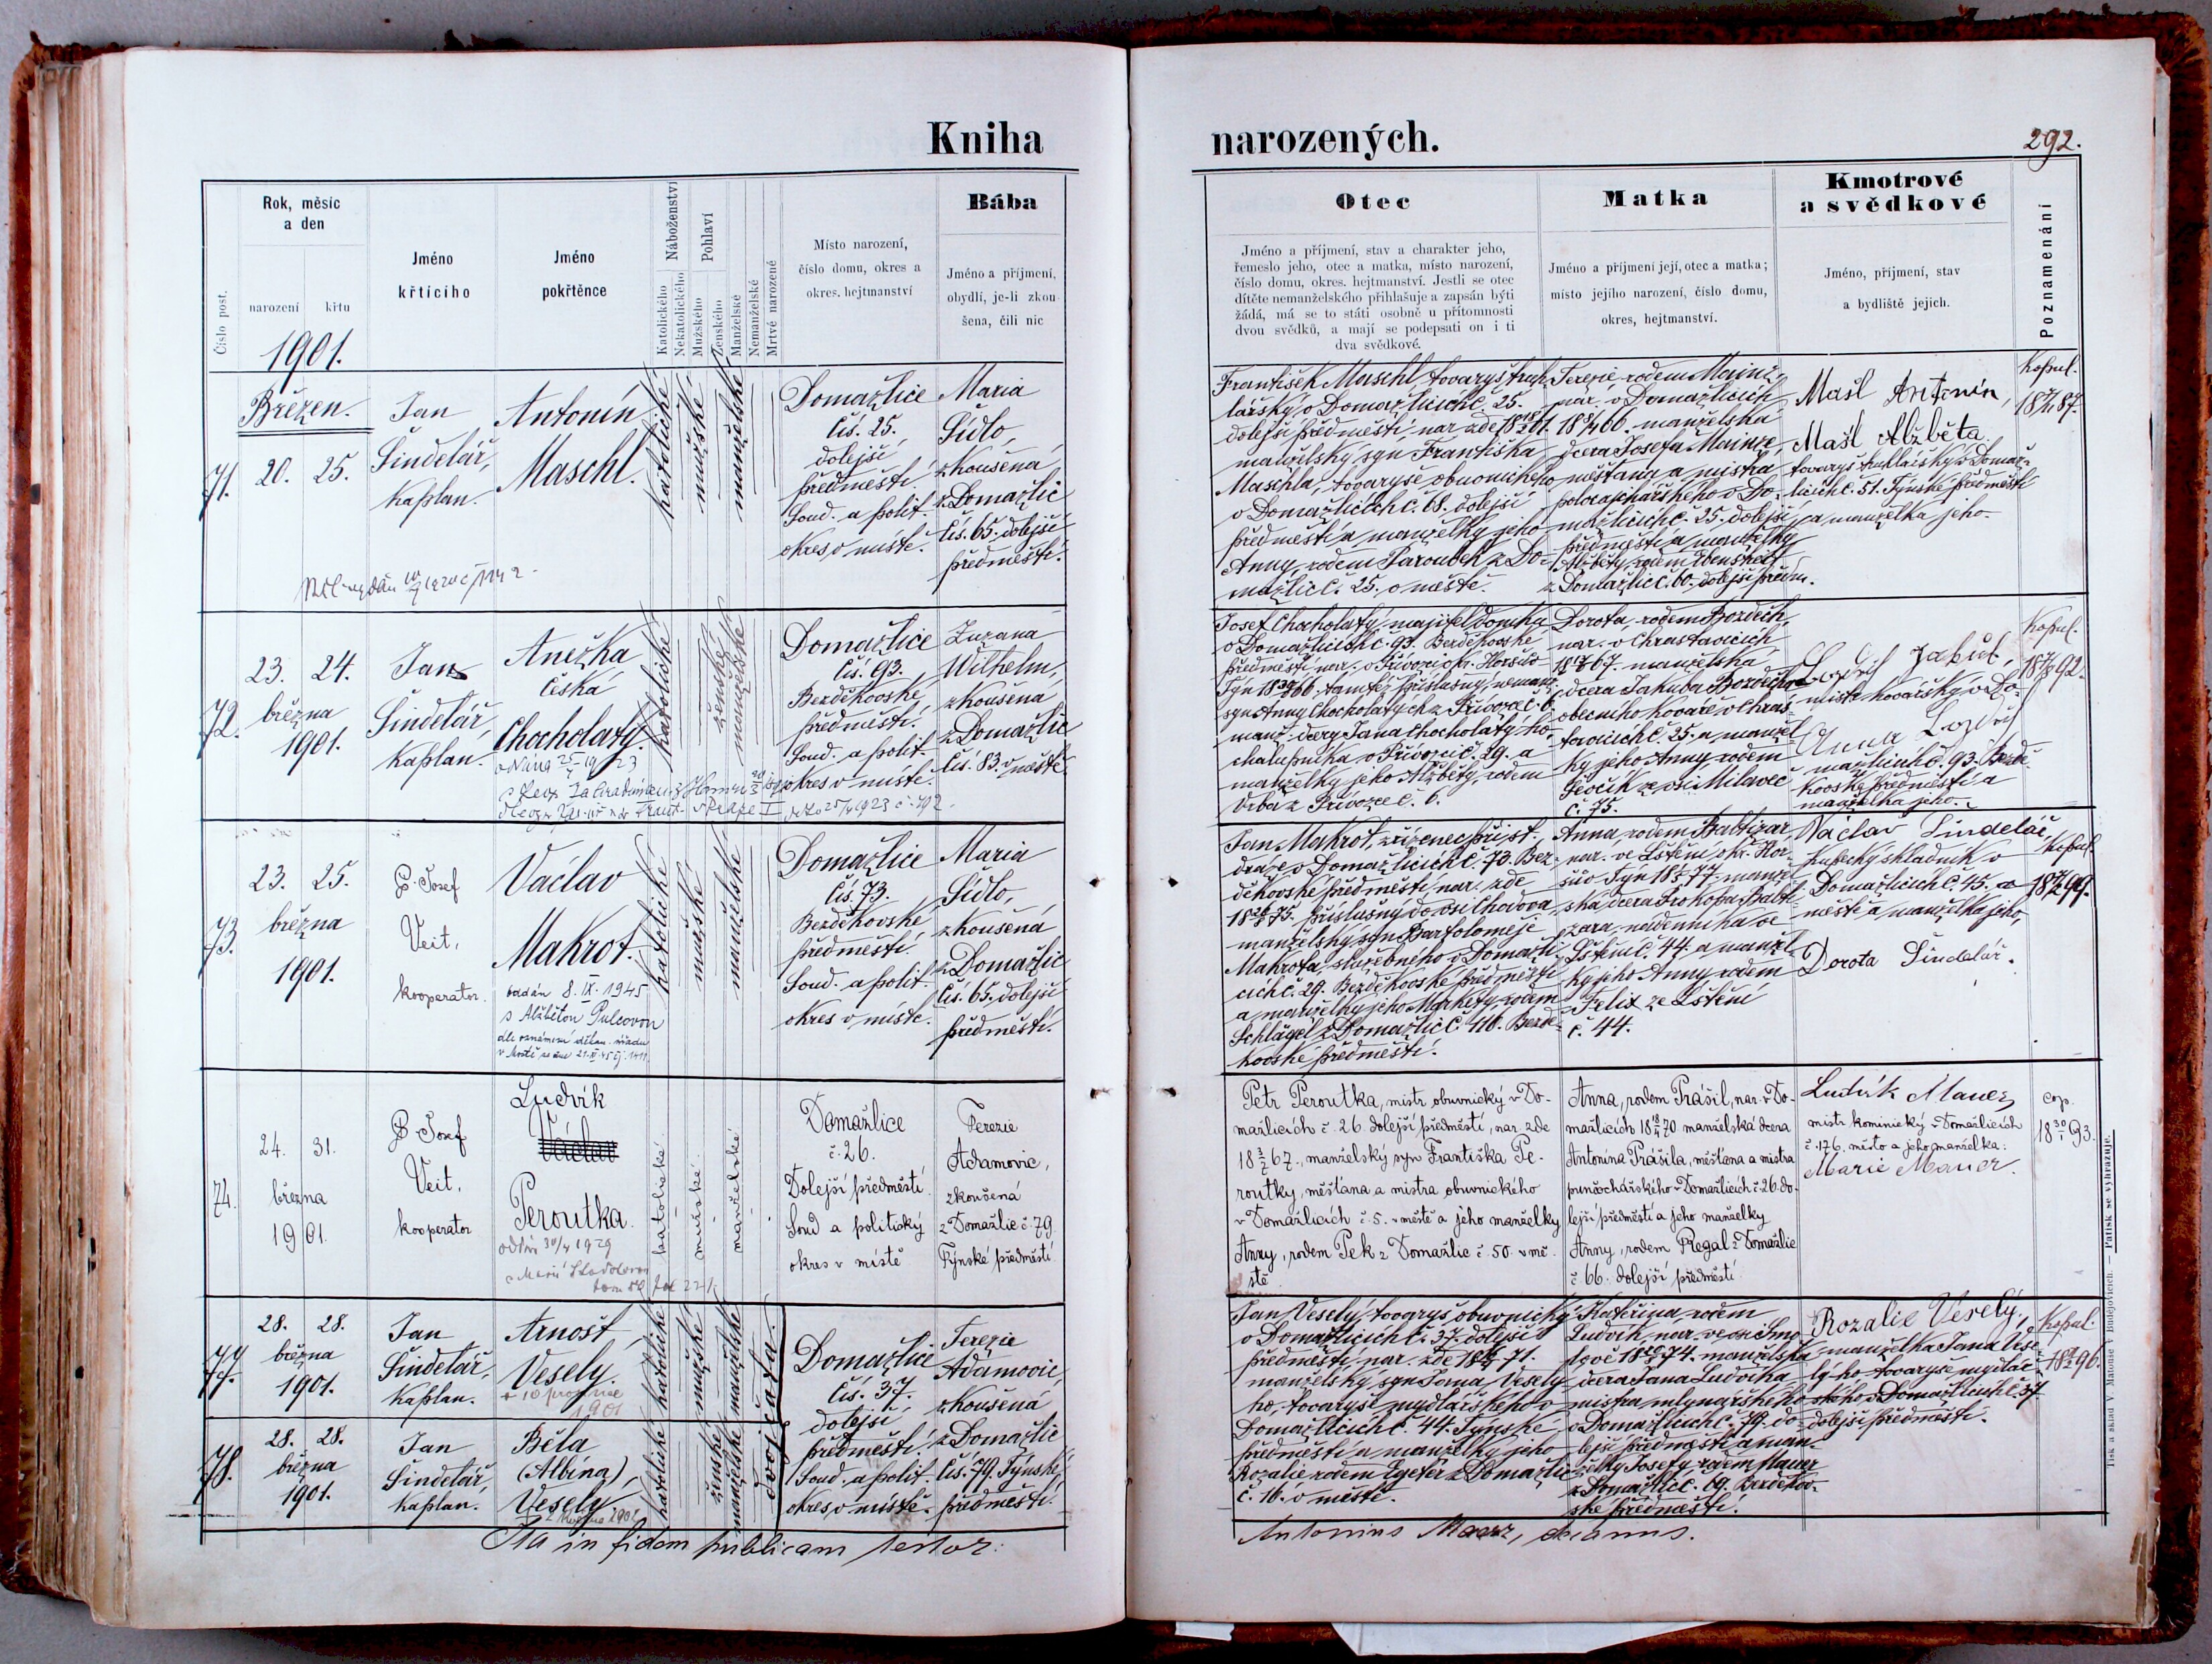 Kniha
narozených.
292.
Číslo post.
Rok, měsíc
a den
narození
křtu
1901.
Jméno
křtícího
Jméno
pokřtěnce
Náboženství
Katolického
Nekatolického
Pohlaví
Mužského
Ženského
Manželské
Nemanželské
Mrtvě narozené
Místo narození,
číslo domu, okres a
okres. hejtmanství
Bába
Jméno a příjmení,
obydlí, je-li zkou-
šena, čili nic
Otec
Jméno a příjmení, stav a charakter jeho,
řemeslo jeho, otec a matka, místo narození,
číslo domu, okres. hejtmanství. Jestli se otec
dítěte nemanželského přihlašuje a zapsán býti
žádá, má se to státi osobně u přítomnosti
dvou svědků, a mají se podepsati on i ti
dva svědkové.
Matka
Jméno a příjmení její, otec a matka;
místo jejího narození, číslo domu,
okres, hejtmanství.
Kmotrové
a svědkové
Jméno, příjmení, stav
a bydliště jejich.
Poznamenání
71.
Březen.
20. 25.
Jan
Šindelář,
kaplan.
Antonín
Maschl.
katolické
mužské
manželské
Domažlice
čís. 25.
dolejší
předměstí.
Soud. a polit.
okres v místě.
Maria
Sídlo,
zkoušená
z Domažlic
čís. 65. dolejší
předměstí.
František Maschl, tovaryš truh-
lářský v Domažlicích č. 25.
dolejší předměstí, nar. zde
manželský syn Františka
Maschla, tovaryše obuvnického
v Domažlicích č. 68. dolejší
předměstí a manželky jeho
Anny, rodem Paroubek z Do-
mažlic č. 25. v městě.
Terezie rodem Mainz,
nar. v Domažlicích
manželská
dcera Josefa Mainze,
měšťana a mistra
v Do-
mažlicích č. 25. dolejší
předměstí a manželky
Alžběty, rodem
z Domažlic č. 60. dolejší předm.
Mašl Antonín,
Mašl Alžběta
tovaryš truhlářský v Domaž-
licích č. 51. Týnské předměstí
a manželka jeho.
Kopul.
87.
72.
23. 24.
března
1901.
Jan
Šindelář,
kaplan.
Anežka
česká
Chocholatý.
katolické
ženské
manželské
Domažlice
čís. 93.
Bezděkovské
předměstí.
Soud. a polit.
okres v místě.
Zuzana
Wilhelm,
zkoušená
z Domažlic
čís. 83. v městě.
Josef Chocholatý, majitel domku
v Domažlicích č. 93. Bezděkovské
předměstí, nar. v Přívozci okr. Horšův
Týn 66. tamtéž příslušný, nemanž.
syn Anny Chocholatých z Přívozce č. 6.
manž. dcery Jana Chocholatýho,
chalupníka v Přívozci č. 29. a
manželky jeho Alžběty, rodem
Vrba z Přívozce č. 6.
Dorota, rodem Bozděch,
nar. v Chrastavicích
67. manželská
dcera Jakuba Bozděcha
obecního kováře v Chras-
tavicích č. 25. a manžel-
ky jeho Anny rodem
ze vsi Milavče
č. 75.
mistr kovářský v Do-
Anna
mažlicích č. 93. Bezdě-
kovské předměstí a
manželka jeho.
Kopul.
92.
73.
23. 25.
března
1901.
P. Josef
Veit,
kooperator.
Václav
Makrot.
oddán 8. IX. 1945
s Alžbětou Pulcovou
dle oznámení děkan. úřadu
v Mostě
katolické
mužské
manželské
Domažlice
čís. 73.
Bezděkovské
předměstí.
Soud. a polit.
okres v místě.
Maria
Sídlo,
zkoušená
z Domažlic
čís. 65. dolejší
předměstí.
Jan Makrot, zřízenec při st.
dráze v Domažlicích č. 73. Bez-
děkovské předměstí, nar. zde
75. příslušný do vsi Chodova
manželský syn Bartoloměje
Makrota, služebného v Domažli-
cích č. 29. Bezděkovské předměstí
a manželky jeho Markéty, rodem
Schlägel z Domažlic č. 116. Bezdě-
kovské předměstí.
Anna, rodem Babtizar,
nar. ve Lštění okr. Hor-
šův Týn 77. manžel-
ská dcera Prokopa Babti-
zara, nádeníka ve
Lštění č. 44. a manžel-
ky jeho Anny rodem
Felix ze Lštění
č. 44.
Václav Šindelář,
kupecký skladník v
Domažlicích č. 45. v
městě a manželka jeho,
Dorota Šindelář.
Kopul.
99.
74.
24. 31.
března
1901
P. Josef
Veit,
kooperator
Ludvík
Václav
Peroutka.
oddán 30/4 1929
katolické
mužské
manželské
Domažlice
č. 26.
Dolejší předměstí.
Soud a politický
okres v místě
Terezie
Adamovic,
zkoušená
z Domažlic č. 79
Týnské předměstí.
Petr Peroutka, mistr obuvnický v Do-
mažlicích č. 26. dolejší předměstí, nar. zde
18 3/2 67., manželský syn Františka Pe-
routky, měšťana a mistra obuvnického
v Domažlicích č. 5. v městě a jeho manželky
Anny, rodem Pek z Domažlic č. 50. v mě-
stě.
Anna, rodem Prášil, nar. v Do-
mažlicích 70 manželská dcera
Antonína Prášila, měšťana a mistra
punčochářského v Domažlicích č. 26. do-
lejší předměstí a jeho manželky
Anny, rodem Regal z Domažlic
č. 66. dolejší předměstí.
Ludvík Mauer,
mistr kominický v Domažlicích
č. 176. město a jeho manželka:
Marie Mauer.
cop.
18 30/1 93.
77.
28. 28.
března
1901.
Jan
Šindelář,
kaplan.
Arnošt
Veselý.
1901
katolické
mužské
manželské
dvojčata.
78.
28. 28.
března
1901.
Jan
Šindelář,
kaplan.
Běla
(Albína),
Veselý.
katolické
ženské
manželské
Domažlice
čís. 37.
dolejší
předměstí.
Soud. a polit.
okres v místě.
Terezie
Adamovic,
zkoušená
z Domažlic
čís. 79. Týnské
předměstí.
Jan Veselý, tovaryš obuvnický
v Domažlicích č. 37. dolejší
předměstí, nar. zde 71.
manželský syn Jana Vesely-
ho, tovaryše mydlářského v
Domažlicích č. 44. Týnské
předměstí a manželky jeho
Rozalie rodem z Domažlic
č. 16. v městě.
Kateřina rodem
Ludvík, nar. ve vsi Smo-
lově 74. manželská
dcera Jana Ludvíka
mistra mlynářského
v Domažlicích č. 79. do-
lejší předměstí a man-
želky Josefy rodem Mauer
z Domažlic č. 69. Bezděkov-
ské předměstí.
Rozalie Veselý,
manželka Jana Vese-
lýho tovaryše mydlář-
ského v Domažlicích č. 37
dolejší předměstí.
Kopul.
96.
Ita in fidem publicam testor:
Antonius Mauer, decanus.
Tisk a sklad V. Matouše v Budějovicích. — Patisk se vyhrazuje.